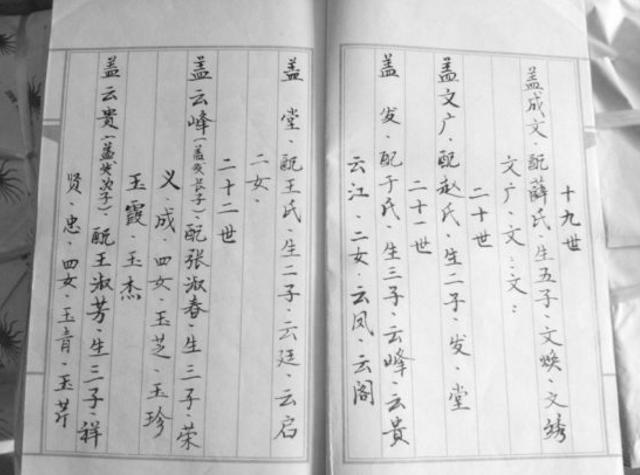 十九世
盖成文·配薛氏·生五子·文焕·文绣
文广·文:文:
二十世
盖文广·配赵氏·生二子·发·堂
二十一世
盖 发·配于氏·生三子·云峰·云贵
云江·二女·云凤·云阁
盖 堂·配王氏·生二子·云廷·云启
二女·
二十二世
盖云峰(盖发长子)配张淑春·生三子·荣
义·成·四女·玉芝·玉珍
玉霞 玉杰
盖云贵(盖发次子)配王淑芳·生三子·祥
贤·忠·四女·玉青·玉芹